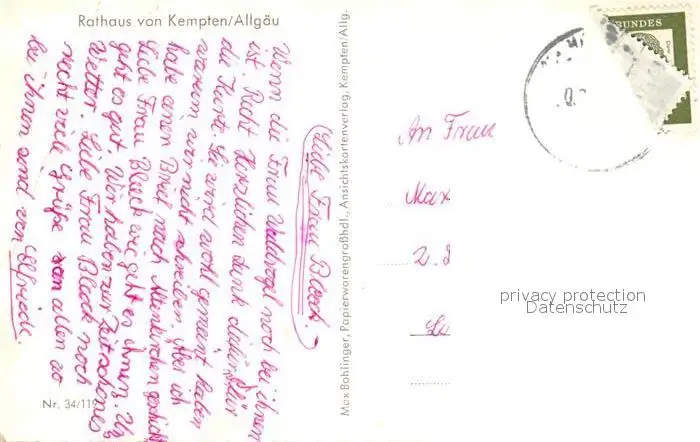 Rathaus von Kempten/Allgäu
Liebe Frau Black.
Wenn die Frau Waldvogel noch bei ihnen
ist. Recht Herzlichen dank dafür für
die Karte. Sie wird wohl gemeint haben
warum wir nicht schreiben. Aber ich
habe einen Brief nach Altenkirchen geschickt
Liebe Frau Black wie geht es ihnen. Uns
geht es gut. Wir haben zur Zeit schönes
Wetter. Liebe Frau Black noch
recht viel Grüße von allen so
bei ihnen sind von Elfriede.
Nr. 34/119
Max Bohlinger, Papierwarengroßhdl., Ansichtskartenverlag, Kempten/Allg.
BUNDES
An Frau
Max
privacy protection
Datenschutz